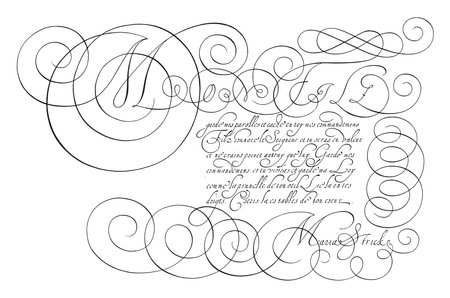 Mon Filz
garde mes parolles et cache en toy mes commandemens
Filz honnore le Seigneur et tu seras en valeur
et ne crains point autry que luy. Garde mes
commandemens et tu vivras et garde ma Loy
comme la prunelle de ton oeil. Lie la en tes
doigts. Escris la es tables de ton coeur.
Maria Strick